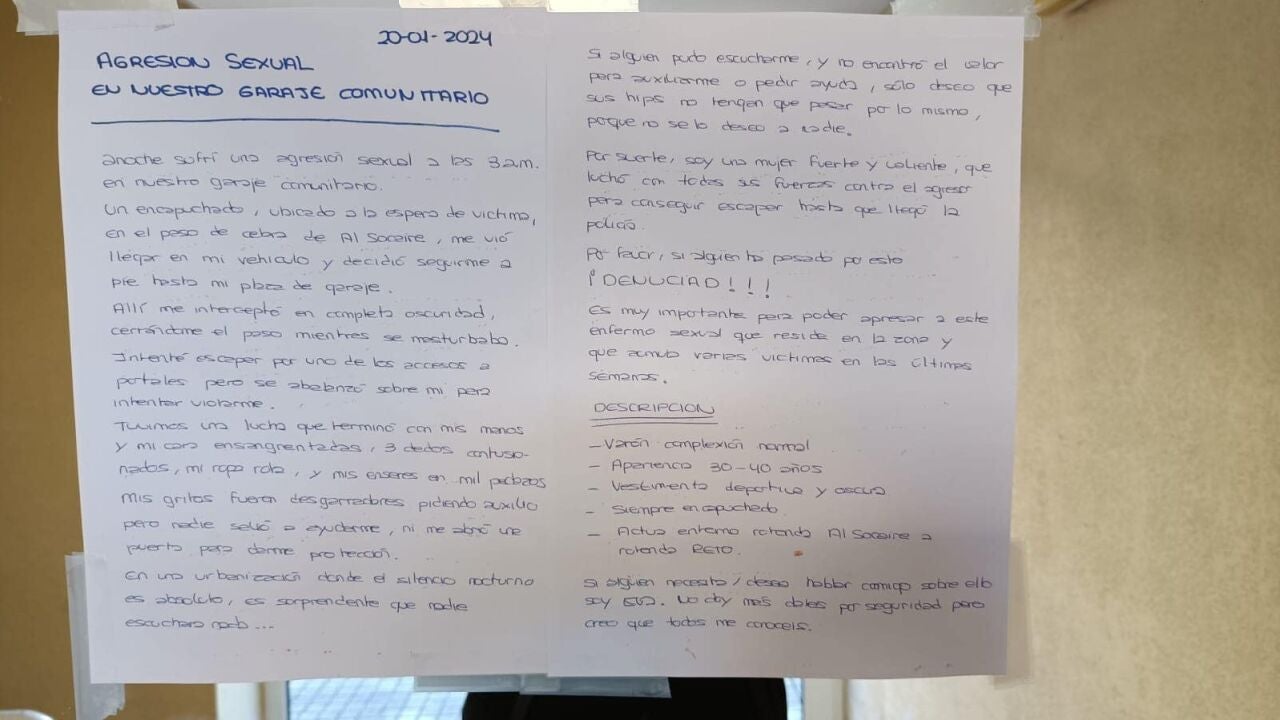 20-01-2024
AGRESION SEXUAL
EN NUESTRO GARAJE COMUNITARIO
anoche sufrí una agresión sexual a las 3 a.m.
en nuestro garaje comunitario.
Un encapuchado, ubicado a la espera de victima,
en el paso de cebra de Al Socaire, me vió
llegar en mi vehiculo y decidió seguirme a
pie hasta mi plaza de garaje.
Allí me interceptó en completa oscuridad,
cerrándome el paso mientras se masturbaba.
Intenté escapar por uno de los accesos a
portales pero se abalanzó sobre mi para
intentar violarme.
Tuvimos una lucha que terminó con mis manos
y mi cara ensangrentadas, 3 dedos contusio-
nados, mi ropa rota, y mis enseres en mil pedazos
Mis gritos fueron desgarradores pidiendo auxilio
pero nadie salió a ayudarme, ni me abrió una
puerta para darme protección.
En una urbanización donde el silencio nocturno
es absoluto, es sorprendente que nadie
escuchara nada...
Si alguien pudo escucharme, y no encontró el valor
para auxiliarme o pedir ayuda, sólo deseo que
sus hijos no tengan que pasar por lo mismo,
porque no se lo deseo a nadie.
Por suerte, soy una mujer fuerte y valiente, que
luchó con todas sus fuerzas contra el agresor
para conseguir escapar hasta que llegó la
policía.
Por favor, si alguien ha pasado por esto
¡DENUCIAD!!!
Es muy importante para poder apresar a este
enfermo sexual que reside en la zona y
que acumula varias victimas en las últimas
semanas.
DESCRIPCION
- Varón complexión normal
- Apariencia 30-40 años
- Vestimenta deportiva y oscura
- Siempre encapuchado.
- Actua entorno rotonda Al Socaire a
rotonda RETO.
Si alguien necesita/desea hablar conmigo sobre ello
soy EVA. No doy más datos por seguridad pero
creo que todos me conoceis.